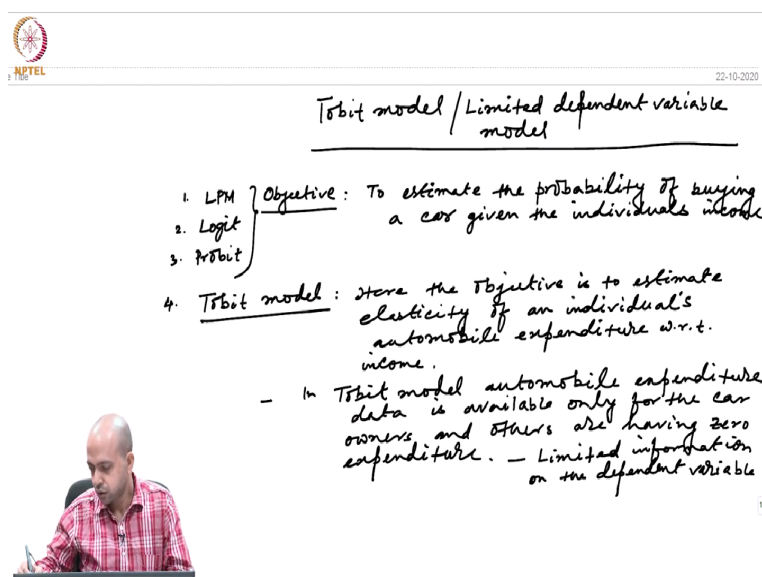 NPTEL
e Title
22-10-2020
Tobit model / Limited dependent variable
model
1. LPM
2. Logit
3. Probit
Objective : To estimate the probability of buying
a car given the individuals income
4. Tobit model : Here the objective is to estimate
elasticity of an individual's
automobile expenditure w.r.t.
income.
- In Tobit model automobile expenditure
data is available only for the car
owners and others are having zero
expenditure. - Limited information
on the dependent variable
1